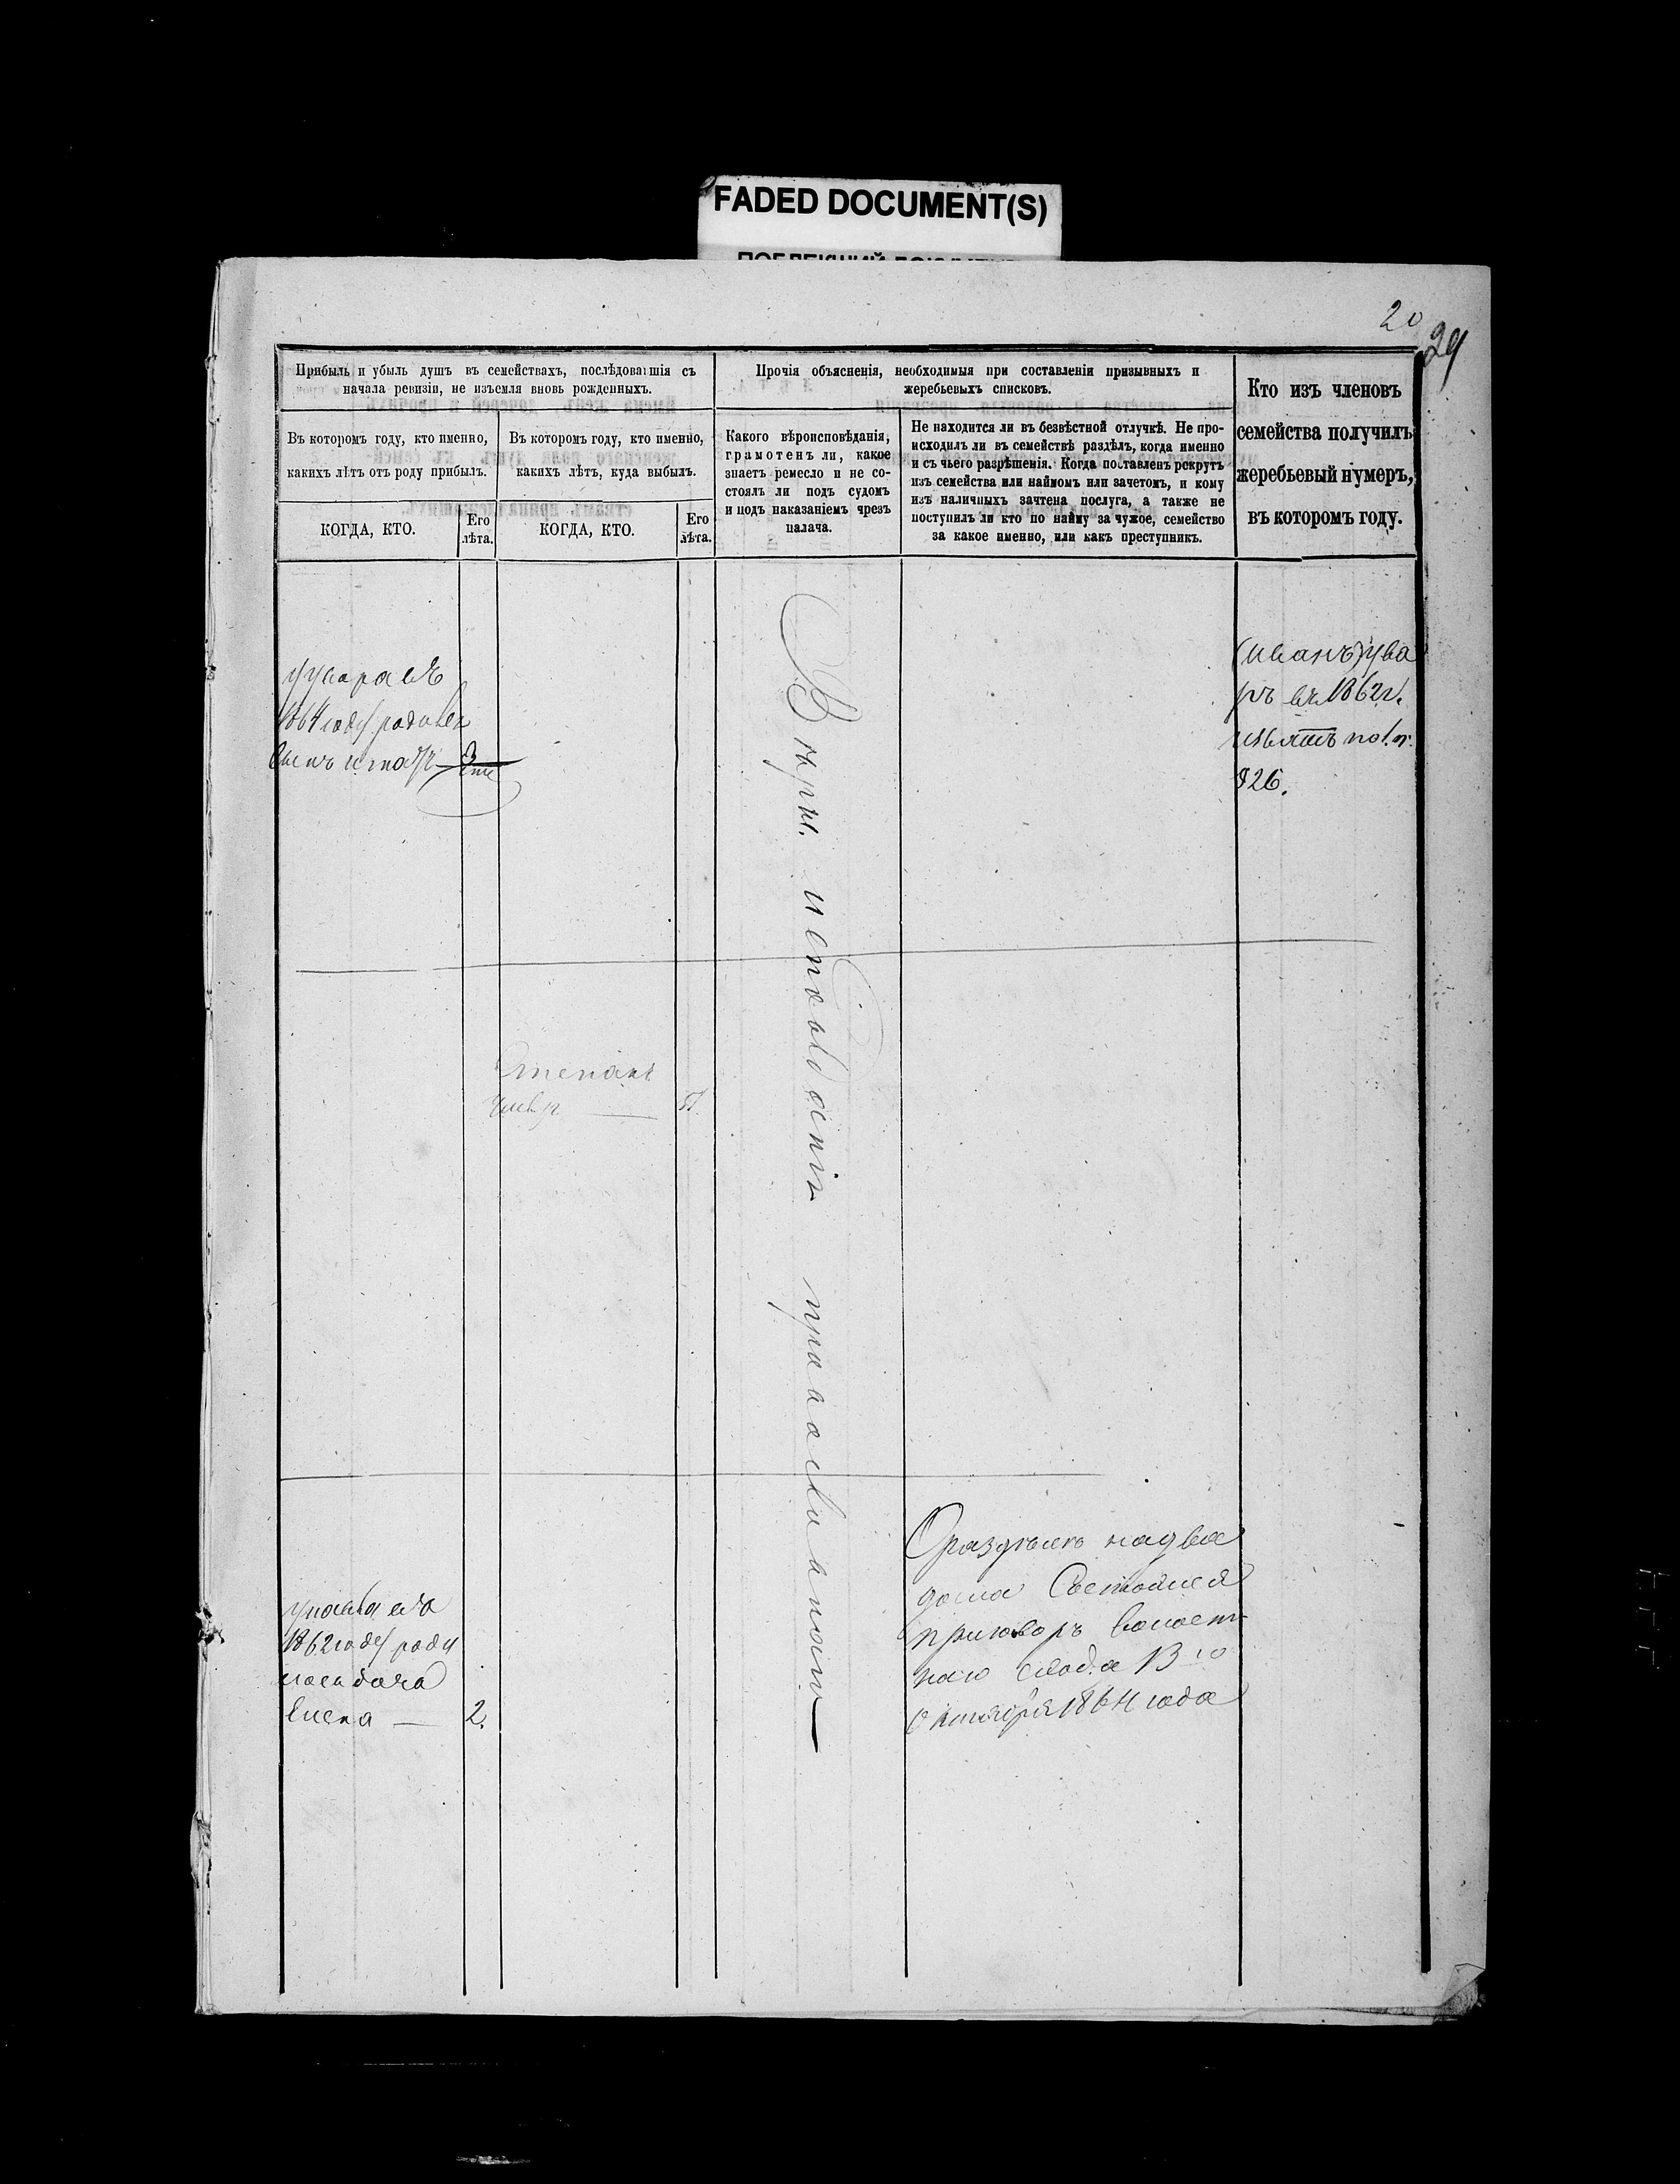 FADED DOCUMENT(S)
20
29
Прибыль и убыль душъ въ семействахъ, послѣдовавшія съ
начала ревизіи, не изъемля вновь рожденныхъ.
Въ которомъ году, кто именно,
какихъ лѣтъ отъ роду прибылъ.
Въ которомъ году, кто именно,
какихъ лѣтъ, куда выбылъ.
КОГДА, КТО.
Его
лѣта.
КОГДА, КТО.
Его
лѣта.
Прочія объясненія, необходимыя при составленіи призывныхъ и
жеребьевыхъ списковъ.
Какого вѣроисповѣданія,
грамотенъ ли, какое
знаетъ ремесло и не со-
стоялъ ли подъ судомъ
и подъ наказаніемъ чрезъ
палача.
Не находится ли въ безвѣстной отлучкѣ. Не про-
исходилъ ли въ семействѣ раздѣлъ, когда именно
и съ чьего разрѣшенія. Когда поставленъ рекрутъ
изъ семейства или наймомъ или зачетомъ, и кому
изъ наличныхъ зачтена послуга, а также не
поступилъ ли кто по найму за чужое, семейство
за какое именно, или какъ преступникъ.
Кто изъ членовъ
семейства получилъ
жеребьевый нумеръ,
въ которомъ году.
1864 году родился
сынъ
(Иванъ) Ува
ръ въ 1862 г.
826.
Степанъ
Вѣры исповѣданія православнаго
1862 году роди
лась дочь
Елена — 2.
О раздѣлѣ на два
дома Состоялся
приговоръ волост
наго схода 13 го
Октября 1864 года